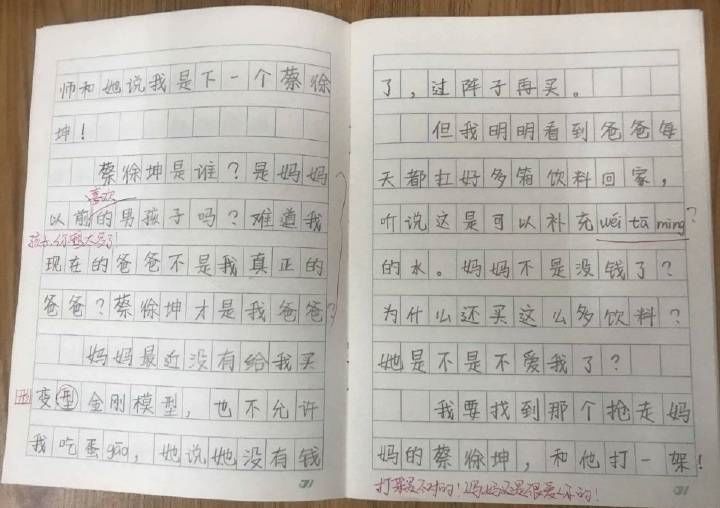 师和她说我是下一个蔡徐
坤！
蔡徐坤是谁？是妈妈
喜欢
以前的男孩子吗？难道我
孩子，你想太多了！
现在的爸爸不是我真正的
爸爸？蔡徐坤才是我爸爸？
妈妈最近没有给我买
形
变型金刚模型，也不允许
我吃蛋gāo，她说她没有钱
了，过阵子再买。
但我明明看到爸爸每
天都扛好多箱饮料回家，
听说这是可以补充wéi tā mìng？
的水。妈妈不是没钱了？
为什么还买这么多饮料？
她是不是不爱我了？
我要找到那个抢走妈
妈的蔡徐坤，和他打一架！
打架是不对的！妈妈还是很爱你的！